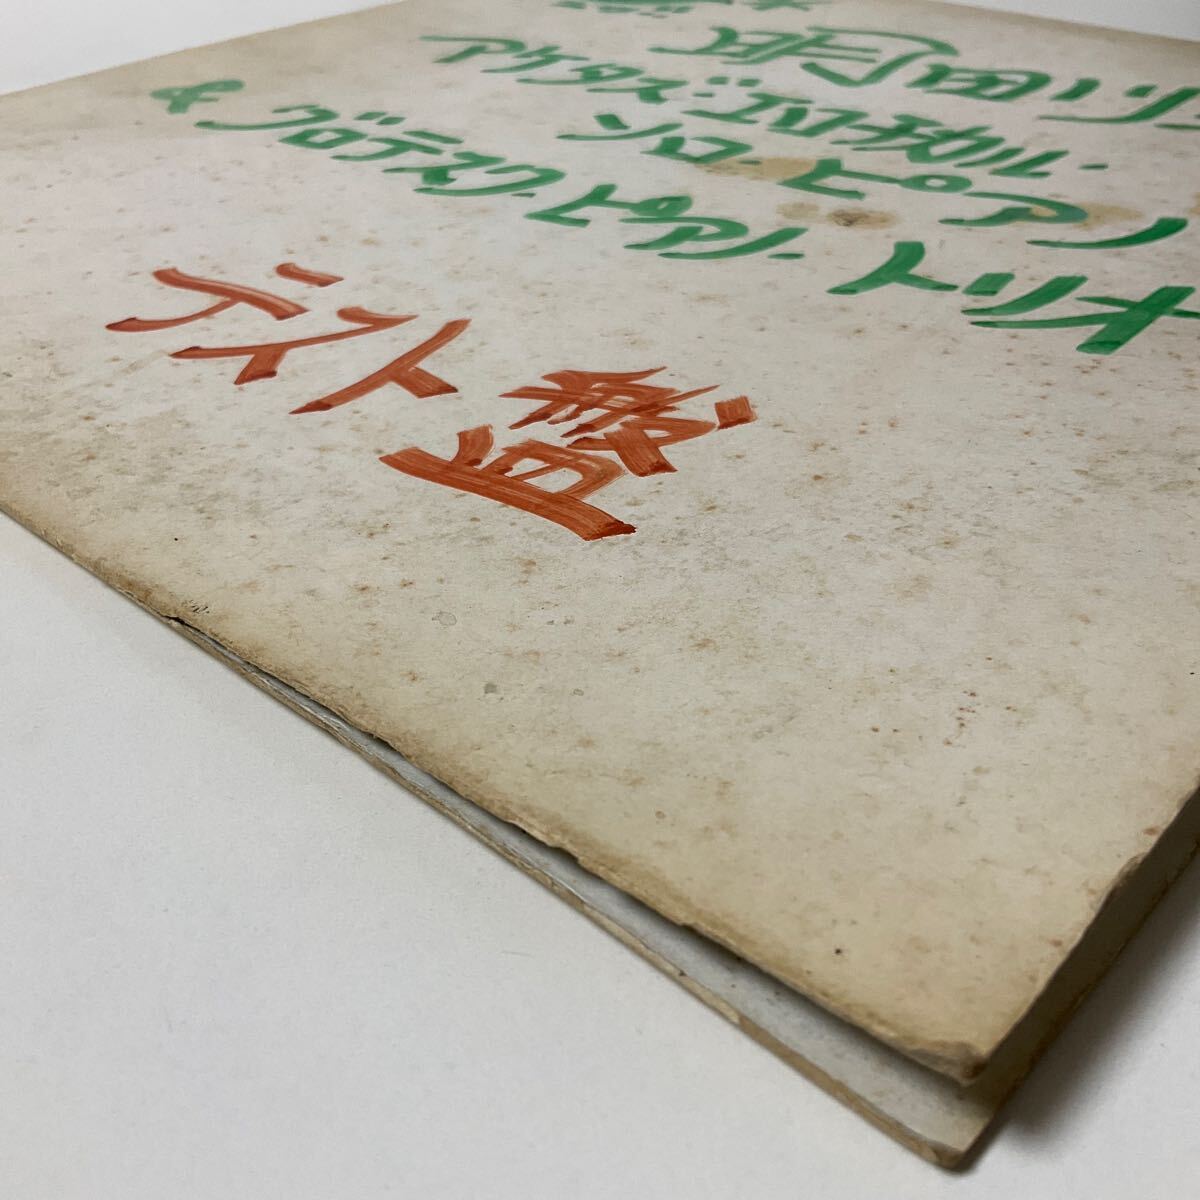 明田川
アケタズ・エロチカル・
ソロ・ピアノ
& グロテスク・ピアノ・トリオ
テスト盤